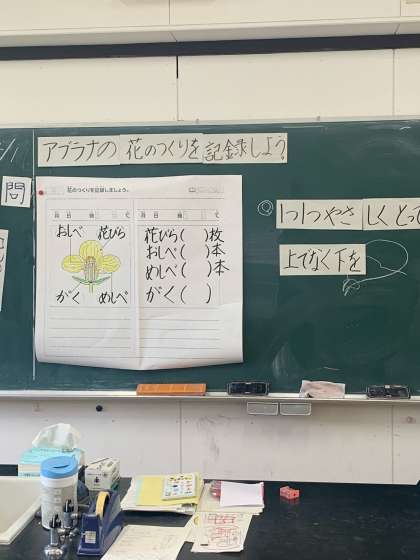 アブラナの花のつくりを記録しよう。
問
花のつくりを記録しましょう。
月 日 時 ℃
月 日 時 ℃
おしべ 花びら
がく めしべ
花びら( )枚
おしべ( )本
めしべ( )本
がく( )
◎ 1つ1つやさしくとって
上でなく下を